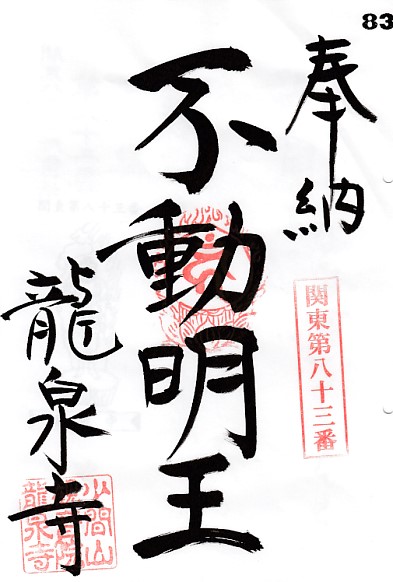 83
奉納
関東第八十三番
不動明王
龍泉寺
小間山
龍泉寺